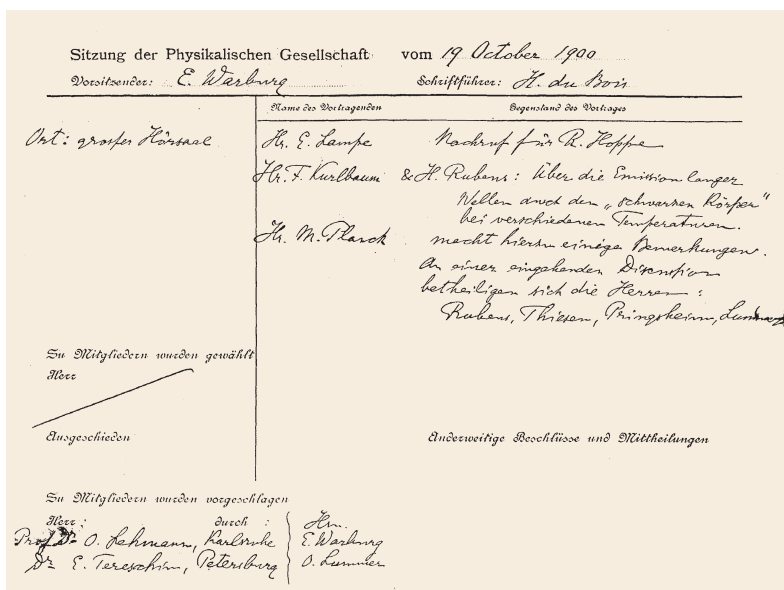 Sitzung der Physikalischen Gesellschaft vom 19 October 1900
Vorsitzender: E. Warburg Schriftführer: H. du Bois
Name des Vortragenden Gegenstand des Vortrages
Ort: grosser Hörsaal Hr. E. Lampe Nachruf für R. Hoppe
Hr. F. Kurlbaum & H. Rubens: Über die Emission langer
Wellen durch den „schwarzen Körper"
bei verschiedenen Temperaturen.
Hr. M. Planck macht hierzu einige Bemerkungen.
An einer eingehenden Discussion
betheiligen sich die Herren:
Rubens, Thiesen, Pringsheim, Lummer
Zu Mitgliedern wurden gewählt
Herr
Ausgeschieden Anderweitige Beschlüsse und Mittheilungen
Zu Mitgliedern wurden vorgeschlagen
Herr: durch: Hrn.
Prof. Dr O. Lehmann, Karlsruhe E. Warburg
Dr E. Tereschin, Petersburg O. Lummer